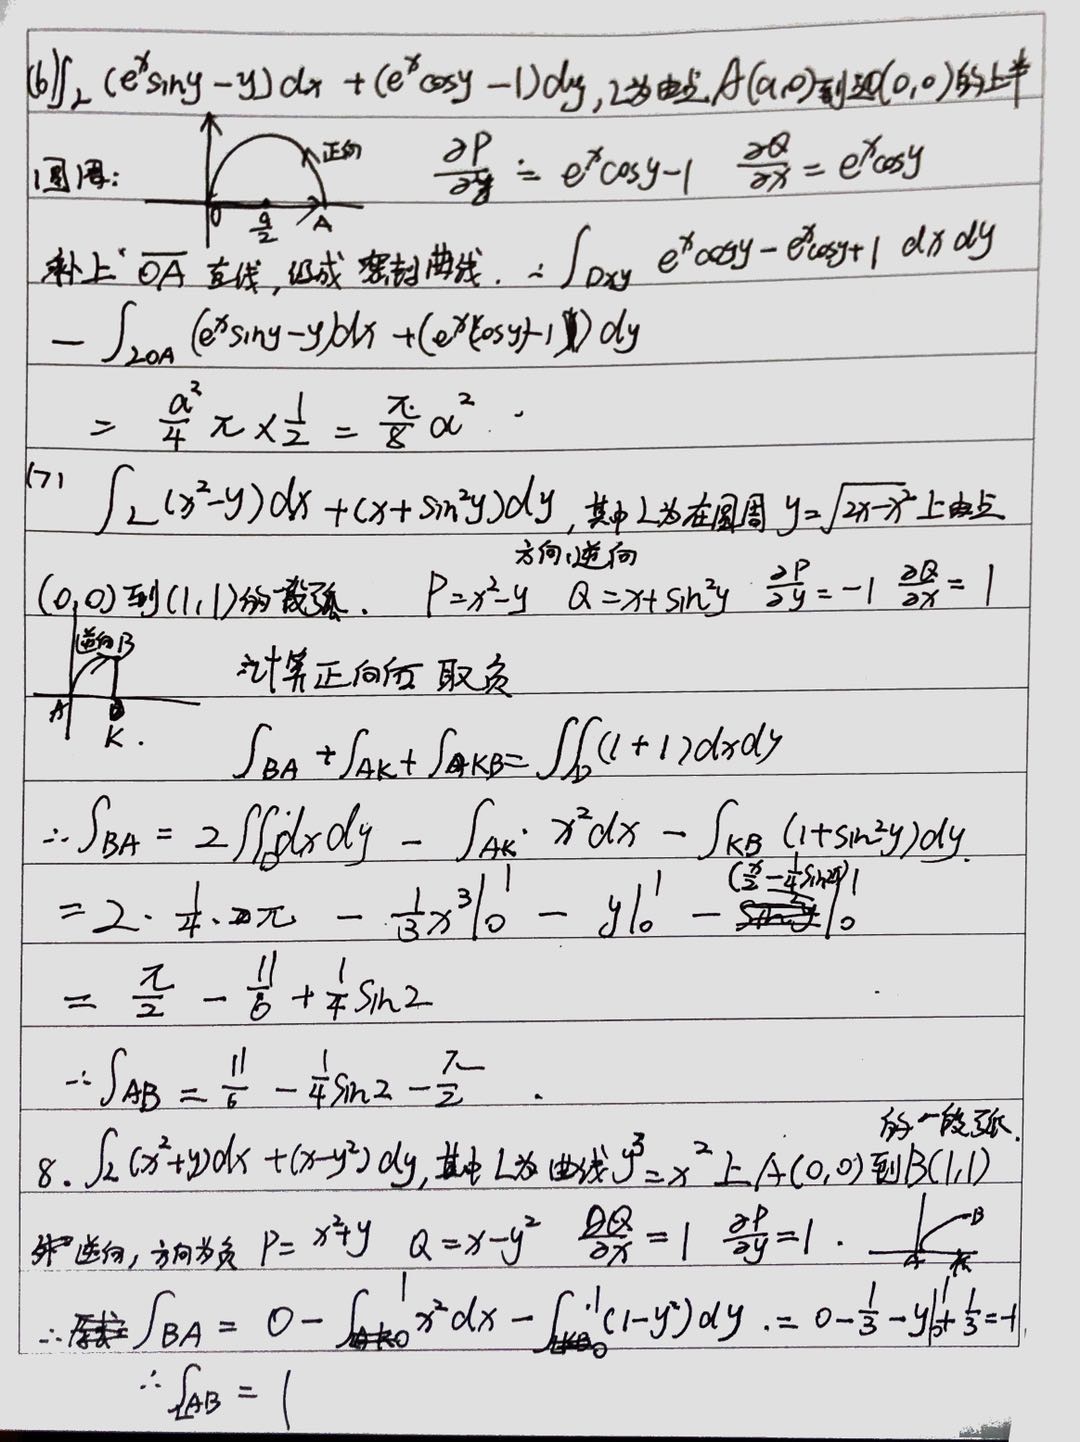 (6) ∫_L (e^x siny - y) dx + (e^x cosy - 1) dy, L为由点A(a,0)到点O(0,0)的上半
圆周: 正向 O a/2 A ∂P/∂y = e^x cosy - 1 ∂Q/∂x = e^x cosy
补上 OA 直线, 组成密封曲线. ∴ ∫_Dxy e^x cosy - e^x cosy + 1 dx dy
- ∫_LOA (e^x siny - y) dx + (e^x cosy - 1) dy
= a²/4 π × 1/2 = π/8 a²
(7) ∫_L (x² - y) dx + (x + sin²y) dy, 其中L为在圆周 y = √(2x - x²) 上由点
方向:逆向
(0,0)到(1,1)的一段弧. P = x² - y Q = x + sin²y ∂P/∂y = -1 ∂Q/∂x = 1
逆向 B A K. 计算正向后取负
∫_BA + ∫_AK + ∫_KB = ∬_D (1 + 1) dx dy
∴ ∫_BA = 2∬_D dx dy - ∫_AK x² dx - ∫_KB (1 + sin²y) dy.
= 2 · 1/4 · π - 1/3 x³ |₀¹ - y |₀¹ - (x/2 - 1/4 sin2x) |₀¹
= π/2 - 11/6 + 1/4 sin2
∴ ∫_AB = 11/6 - 1/4 sin2 - π/2 .
的一段弧.
8. ∫_L (x² + y) dx + (x - y²) dy, 其中L为曲线 y³ = x² 上 A(0,0) 到 B(1,1)
逆向, 方向为负 P = x² + y Q = x - y² ∂Q/∂x = 1 ∂P/∂y = 1 . A B K
∴ ∫_BA = 0 - ∫₀¹ x² dx - ∫₀¹ (1 - y²) dy . = 0 - 1/3 - y|₀¹ + 1/3 = -1
∴ ∫_AB = 1